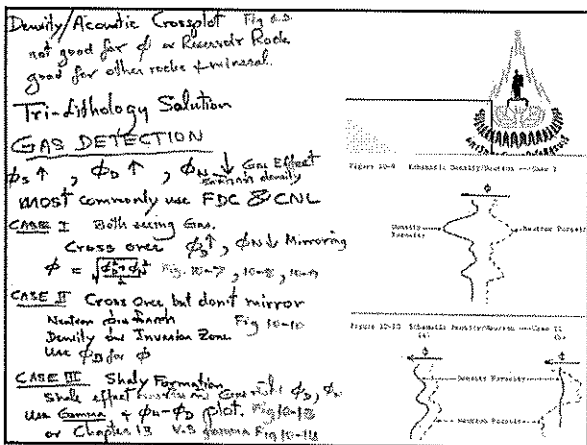 Density/Acoustic Crossplot Fig
not good for φ or Reservoir Rock
good for other rocks + mineral.
Tri-Lithology Solution
GAS DETECTION
φs ↑ , φD ↑ , φN ↓ Gas Effect
density
most commonly use FDC & CNL
CASE I Both seeing Gas.
Cross over φD ↑, φN ↓ Mirroring
φ = Fig. 10-7, 10-8, 10-9
CASE II Cross over but don't mirror
Neutron Fig 10-10
Density on Invasion Zone
Use φD for φ
CASE III Shaly Formation
Shale effect φD, φN
Use Gamma + φN-φD plot. Fig 10-13
or Chapter 13 V.S gamma Fig 10-14
Figure 10-9 Schematic Density/Neutron ---Case I
φ
Density Porosity
Neutron Porosity
Figure 10-10 Schematic Density/Neutron ---Case II
φ
φ
Density Porosity
Neutron Porosity